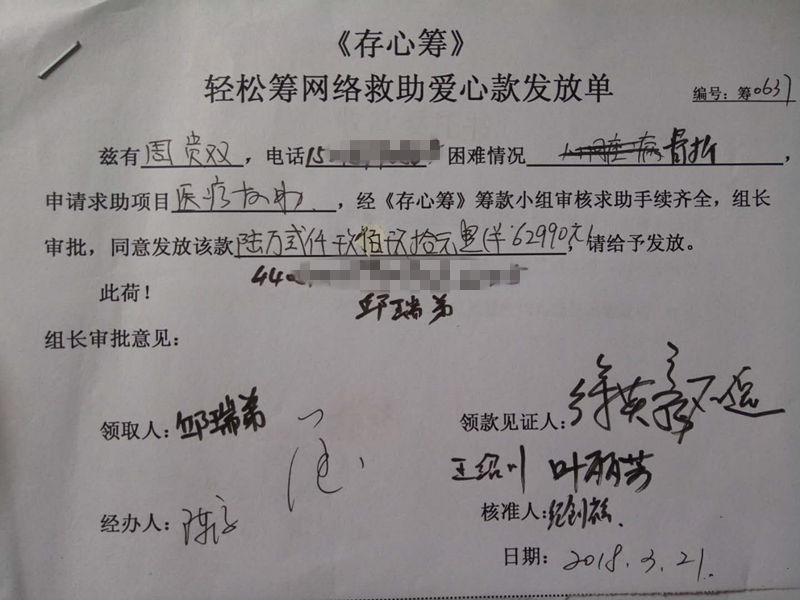 《存心筹》
轻松筹网络救助爱心款发放单
编号：筹0637
兹有周贵双，电话15 困难情况 骨折，
申请求助项目医疗救助，经《存心筹》筹款小组审核求助手续齐全，组长
审批，同意发放该款陆万贰仟玖佰玖拾元 (￥:62990元)，请给予发放。
440
此荷！
邱瑞弟
组长审批意见：
领取人：邱瑞弟
领款见证人：
王绍川 叶丽芳
经办人：
核准人：
日期：2018.3.21.